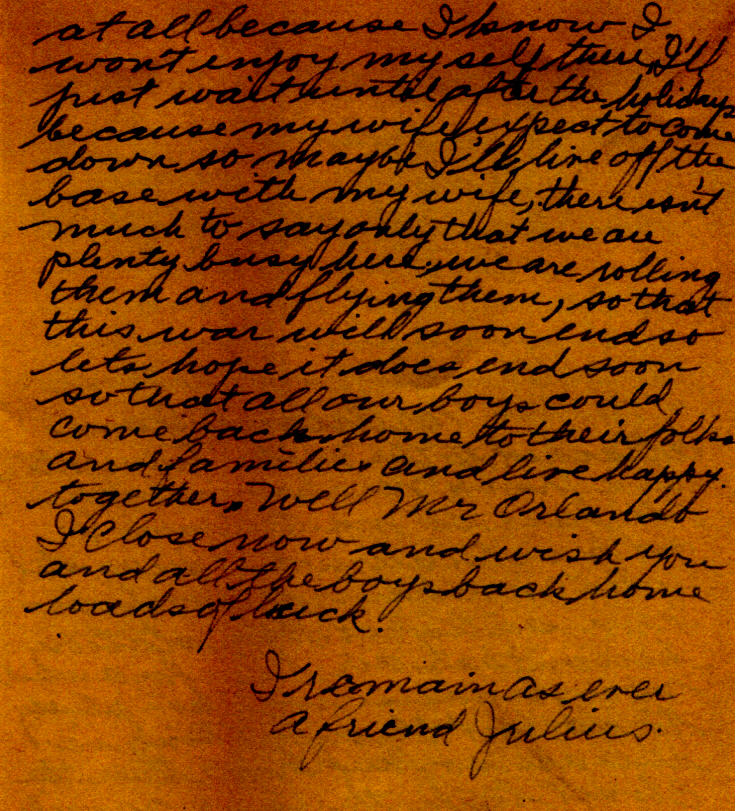 at all because I know I
won't enjoy my self there, I'll
just wait until after the holidays
because my wife expect to come
down so maybe I'll live off the
base with my wife, there isn't
much to say only that we are
plenty busy here, we are rolling
them and flying them, so that
this war will soon end so
lets hope it does end soon
so that all our boys could
come back home to their folks
and families and live happy
together. Well Mr Orlando
I close now and wish you
and all the boys back home
loads of luck.
I remain as ever
a friend Julius.